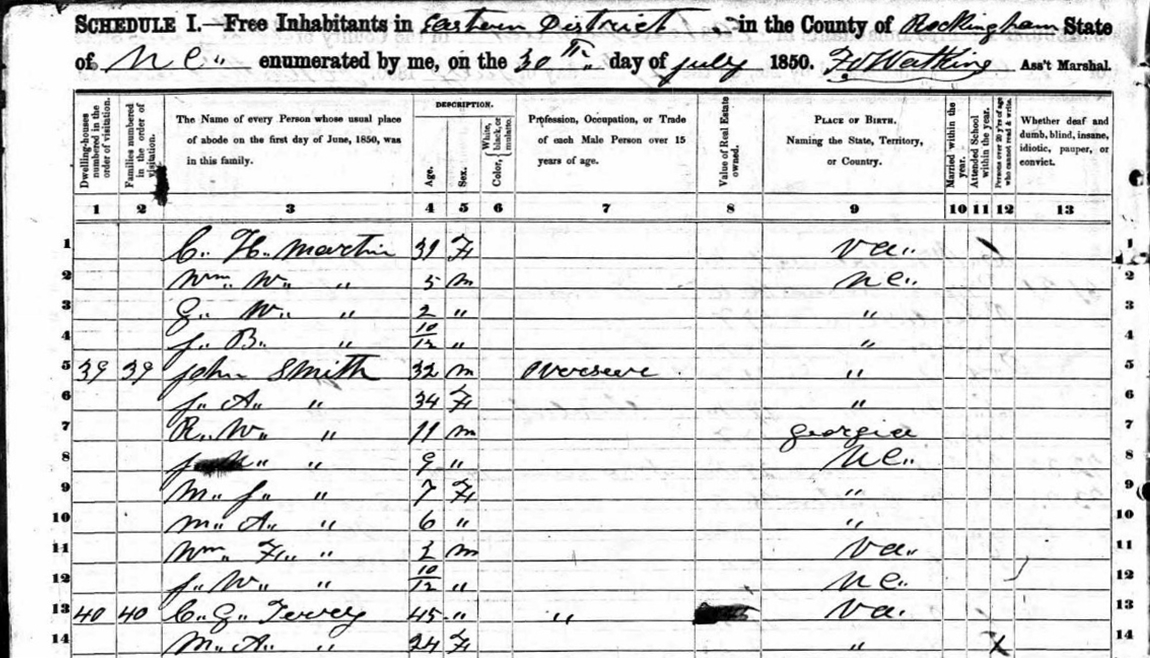 SCHEDULE I.—Free Inhabitants in Eastern District in the County of Rockingham State
of N C. enumerated by me, on the 30th day of July 1850. Ass't Marshal.
Dwelling-houses numbered in the order of visitation.
Families numbered in the order of visitation.
The Name of every Person whose usual place of abode on the first day of June, 1850, was in this family.
DESCRIPTION.
Age.
Sex.
Color, White, black, or mulatto.
Profession, Occupation, or Trade of each Male Person over 15 years of age.
Value of Real Estate owned.
PLACE OF BIRTH. Naming the State, Territory, or Country.
Married within the year.
Attended School within the year.
Persons over 20 y'rs of age who cannot read & write.
Whether deaf and dumb, blind, insane, idiotic, pauper, or convict.
1 2 3 4 5 6 7 8 9 10 11 12 13
1 C. H. Martin 39 F Va. 1
2 Wm. W. " 5 m N C. 2
3 G. W. " 2 " " 3
4 J. B. " 10/12 " " 4
5 39 39 John Smith 32 m Overseere " 5
6 J. A. " 34 F " 6
7 R. W. " 11 m Georgia 7
8 " 9 " N C. 8
9 M. J. " 7 F " 9
10 M. A. " 6 " " 10
11 Wm. F. " 2 m Va. 11
12 J. W. " 10/12 " N C. 12
13 40 40 C. G. 45 " " Va. 13
14 M. A. " 24 F " X 14